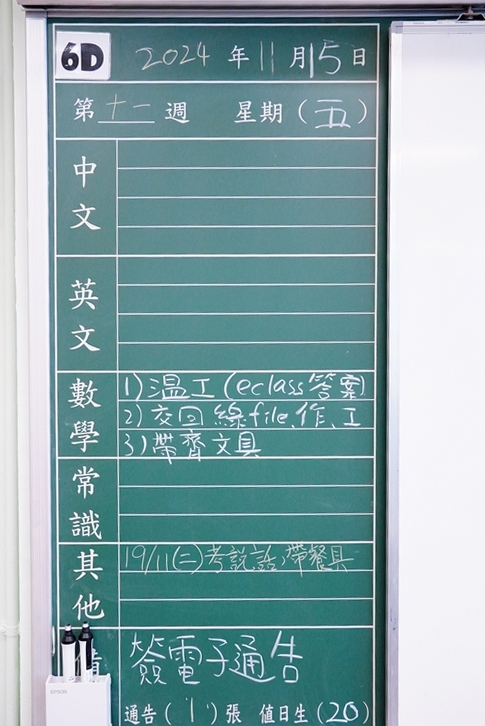 6D 2024 年 11 月 15 日
第 十一 週 星期 ( 五 )
中文
英文
數學
1) 温工 (eclass答案)
2) 交回 線file、作、工
3) 帶齊文具
常識
其他
19/11(二)考說話、帶餐具
簽電子通告
通告 ( 1 ) 張 值日生 (20)
EPSON